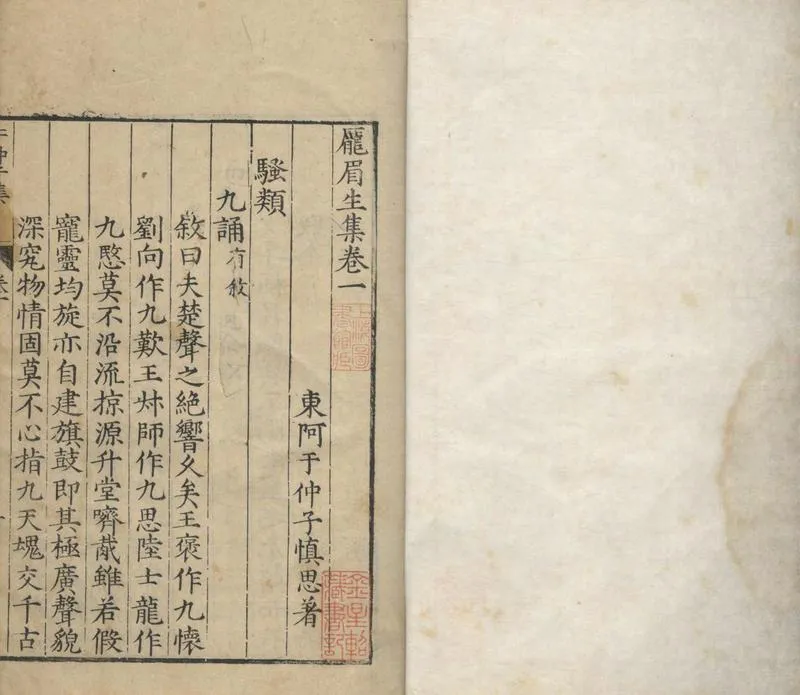 龎眉生集卷一
東阿于仲子慎思著
騷類
九誦有敘
敘曰夫楚聲之絶響久矣王褒作九懷
劉向作九歎王叔師作九思陸士龍作
九愍莫不沿流掠源升堂嚌胾雖若假
寵靈均旋亦自建旗鼓即其極廣聲貌
深究物情固莫不心指九天塊交千古